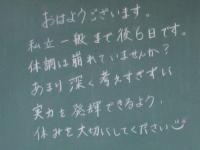 おはようございます。
私立一般まで後6日です。
体調は崩れていませんか？
あまり深く考えすぎずに
実力を発揮できるよう、
休みを大切にしてください